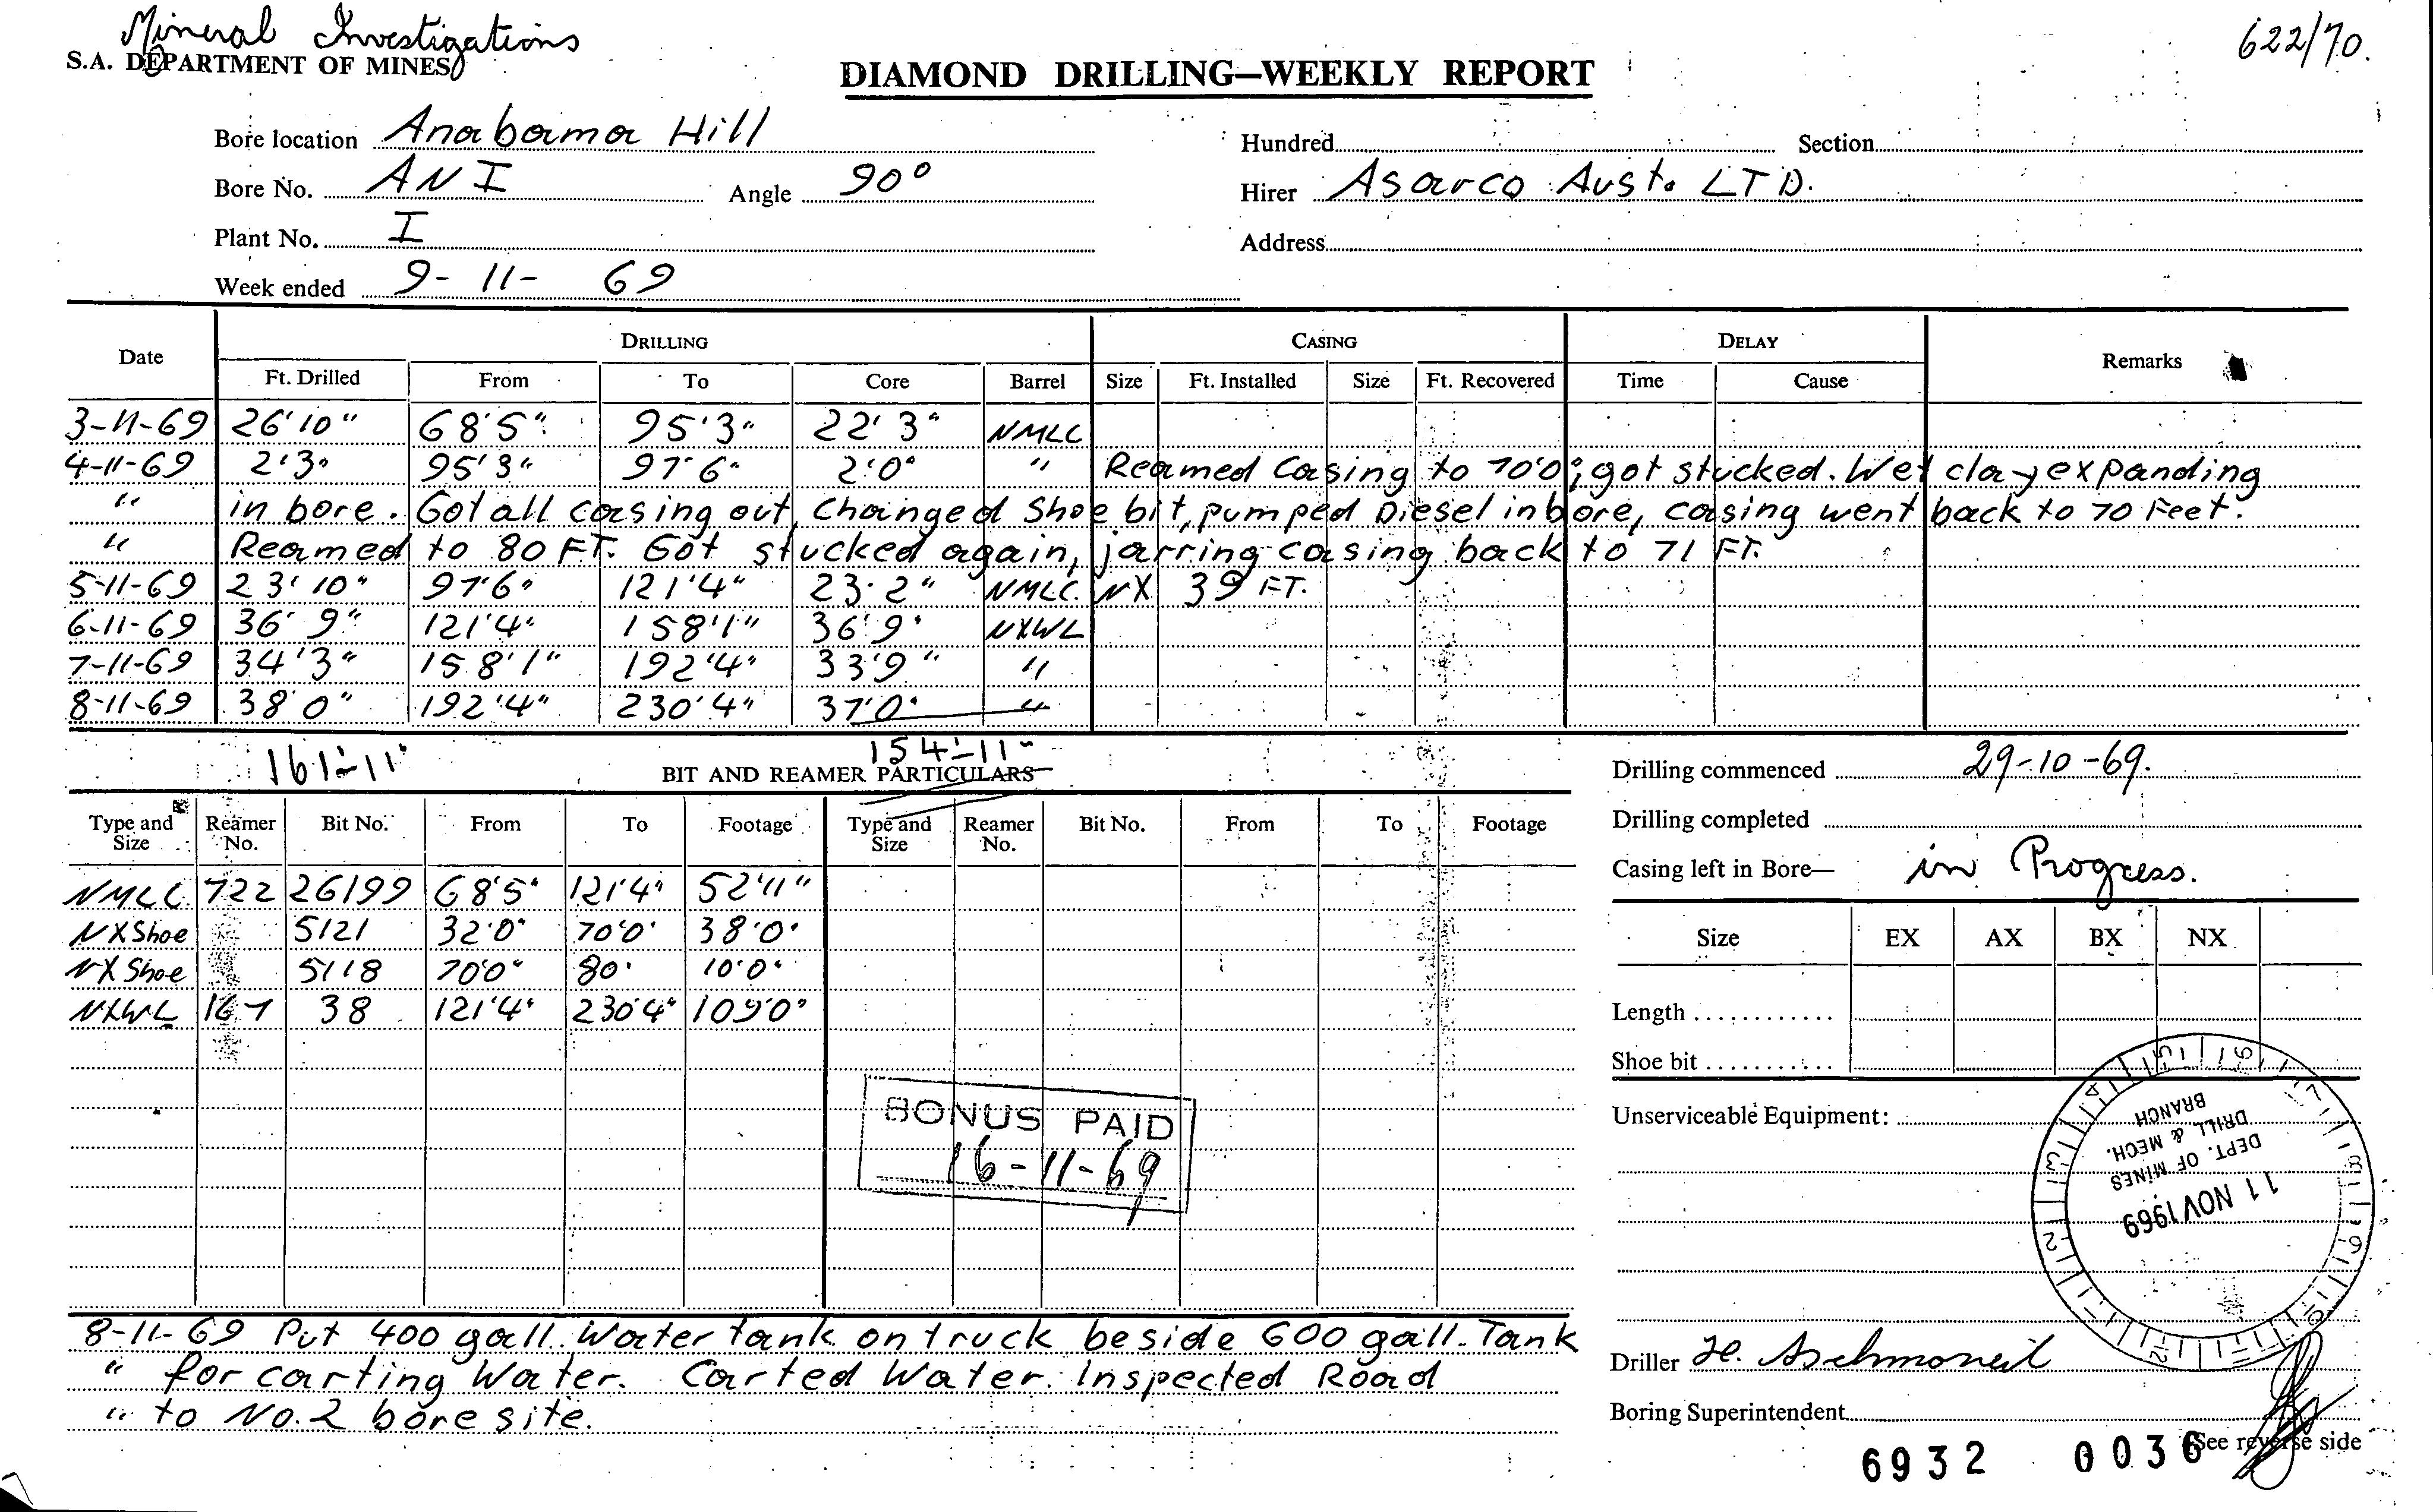 Mineral Investigations
622/70.
S.A. DEPARTMENT OF MINES
DIAMOND DRILLING—WEEKLY REPORT
Bore location Anabama Hill
Hundred Section
Bore No. AN I Angle 90°
Hirer Asarco Aust. LTD.
Plant No. I
Address
Week ended 9-11-69
Date DRILLING CASING DELAY Remarks
Ft. Drilled From To Core Barrel Size Ft. Installed Size Ft. Recovered Time Cause
3-11-69 26'10" 68'5" 95'3" 22'3" NMLC
4-11-69 2'3" 95'3" 97'6" 2'0" " Reamed Casing to 70'0"; got stucked. Wet clay expanding
" in bore. Got all casing out, Changed Shoe bit, pumped Diesel in bore, casing went back to 70 Feet.
" Reamed to 80 FT. Got stucked again, jarring casing back to 71 FT.
5-11-69 23'10" 97'6" 121'4" 23'2" NMLC. NX 39 FT.
6-11-69 36'9" 121'4" 158'1" 36'9" NXWL
7-11-69 34'3" 158'1" 192'4" 33'9" "
8-11-69 38'0" 192'4" 230'4" 37'0" "
161'-11" 154'-11"
BIT AND REAMER PARTICULARS
Drilling commenced 29-10-69.
Drilling completed
Casing left in Bore— in Progress.
Type and Size Reamer No. Bit No. From To Footage Type and Size Reamer No. Bit No. From To Footage
NMLC 722 26199 68'5" 121'4" 52'11"
NX Shoe 5121 32'0" 70'0" 38'0"
NX Shoe 5118 70'0" 80' 10'0"
NXWL 167 38 121'4" 230'4" 109'0"
Size EX AX BX NX
Length
Shoe bit
BONUS PAID
16-11-69
Unserviceable Equipment:
DRILL & MECH. BRANCH
DEPT. OF MINES
11 NOV 1969
8-11-69 Put 400 gall. Water tank on truck beside 600 gall. Tank
" for carting Water. Carted Water. Inspected Road
" to No. 2 bore site.
Driller
Boring Superintendent
See reverse side
6932 0036